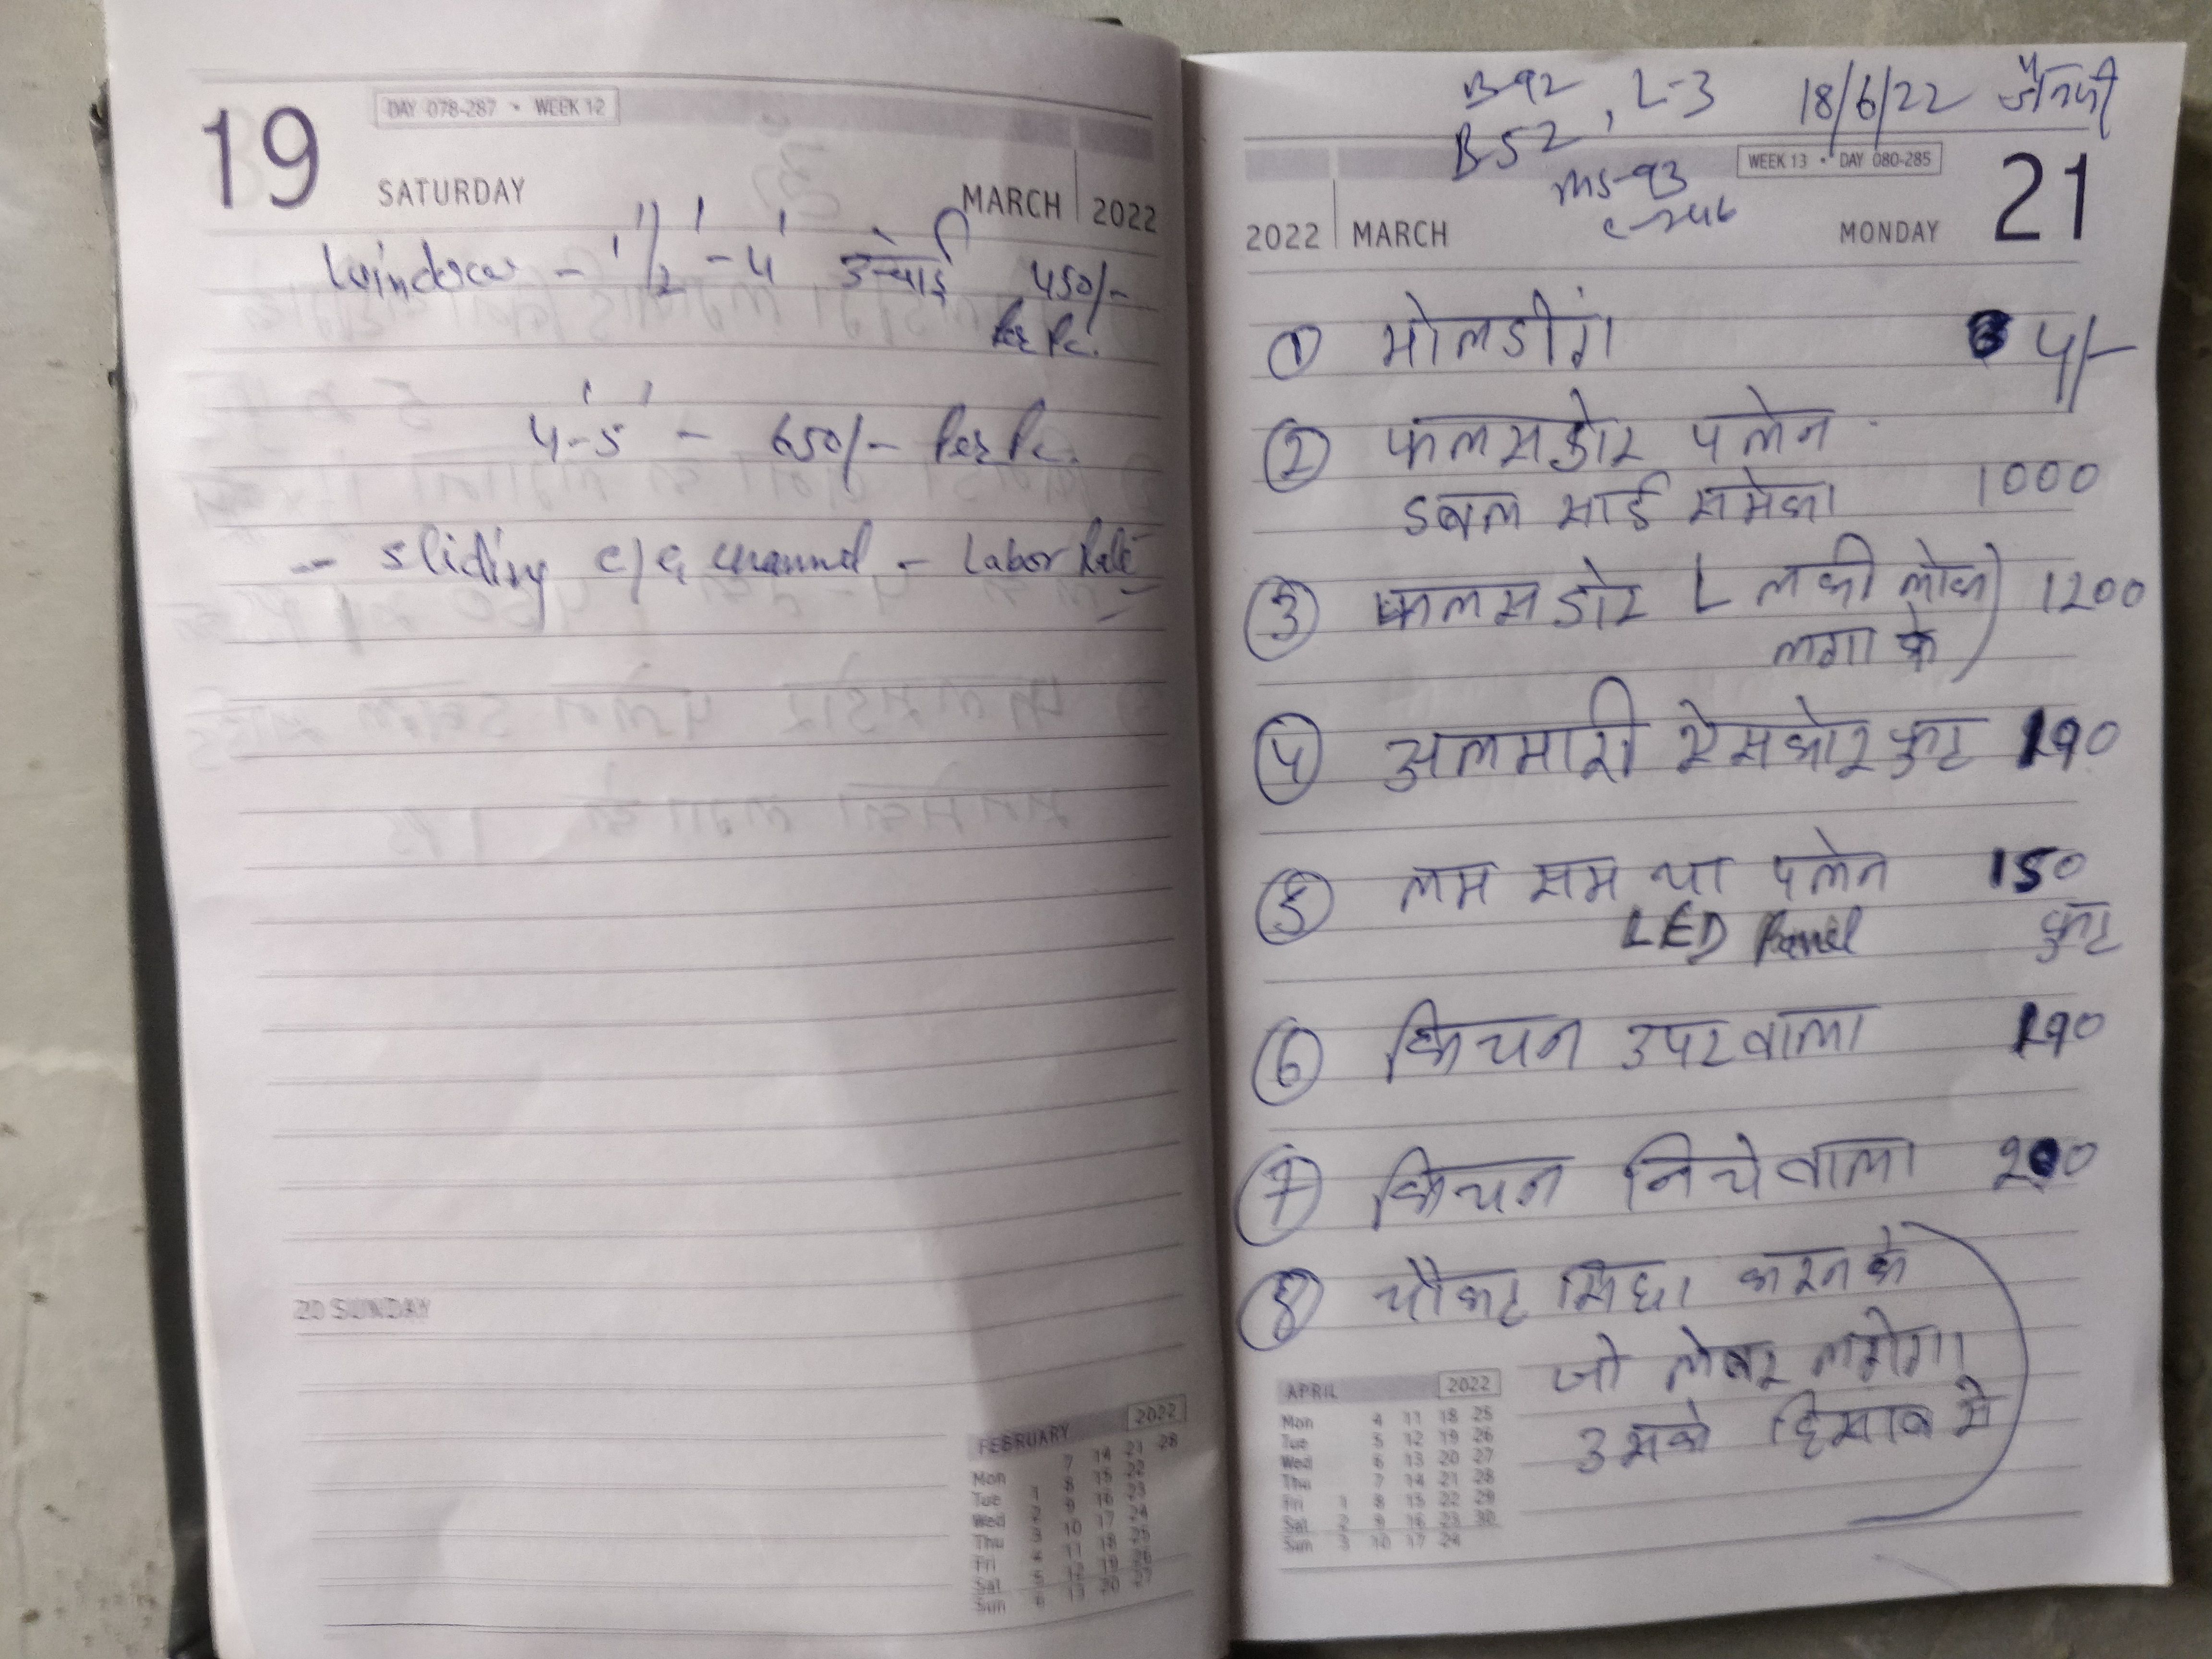 19
DAY 078-287 • WEEK 12
SATURDAY
MARCH 2022
Window - 1 1/2' - 4' उन्चाई 450/-
Per Pc.
4'-5' - 650/- Per Pc.
- Sliding c/c channel - Labor Rate
20 SUNDAY
FEBRUARY 2022
Mon 7 14 21 28
Tue 1 8 15 22
Wed 2 9 16 23
Thu 3 10 17 24
Fri 4 11 18 25
Sat 5 12 19 26
Sun 6 13 20 27
B-92, L-3 18/6/22
B52
MS-93
C-246
WEEK 13 • DAY 080-285
2022 MARCH
MONDAY
21
① मोलडींग 5/-
② फलसडोर पलेन
डबल साईड समेका 1000
③ फलसडोर L लकी लोक 1200
लगा के
④ अलमारी ऐसकोर फुट 190
⑤ लम सम या पलेन 150
LED Panel फुट
⑥ किचन उपरवाला 190
⑦ किचन निचेवाला 200
⑧ चौकट सिधा करनके
जो लेबर लगेगा
उसके हिसाब से
APRIL 2022
Mon 4 11 18 25
Tue 5 12 19 26
Wed 6 13 20 27
Thu 7 14 21 28
Fri 1 8 15 22 29
Sat 2 9 16 23 30
Sun 3 10 17 24